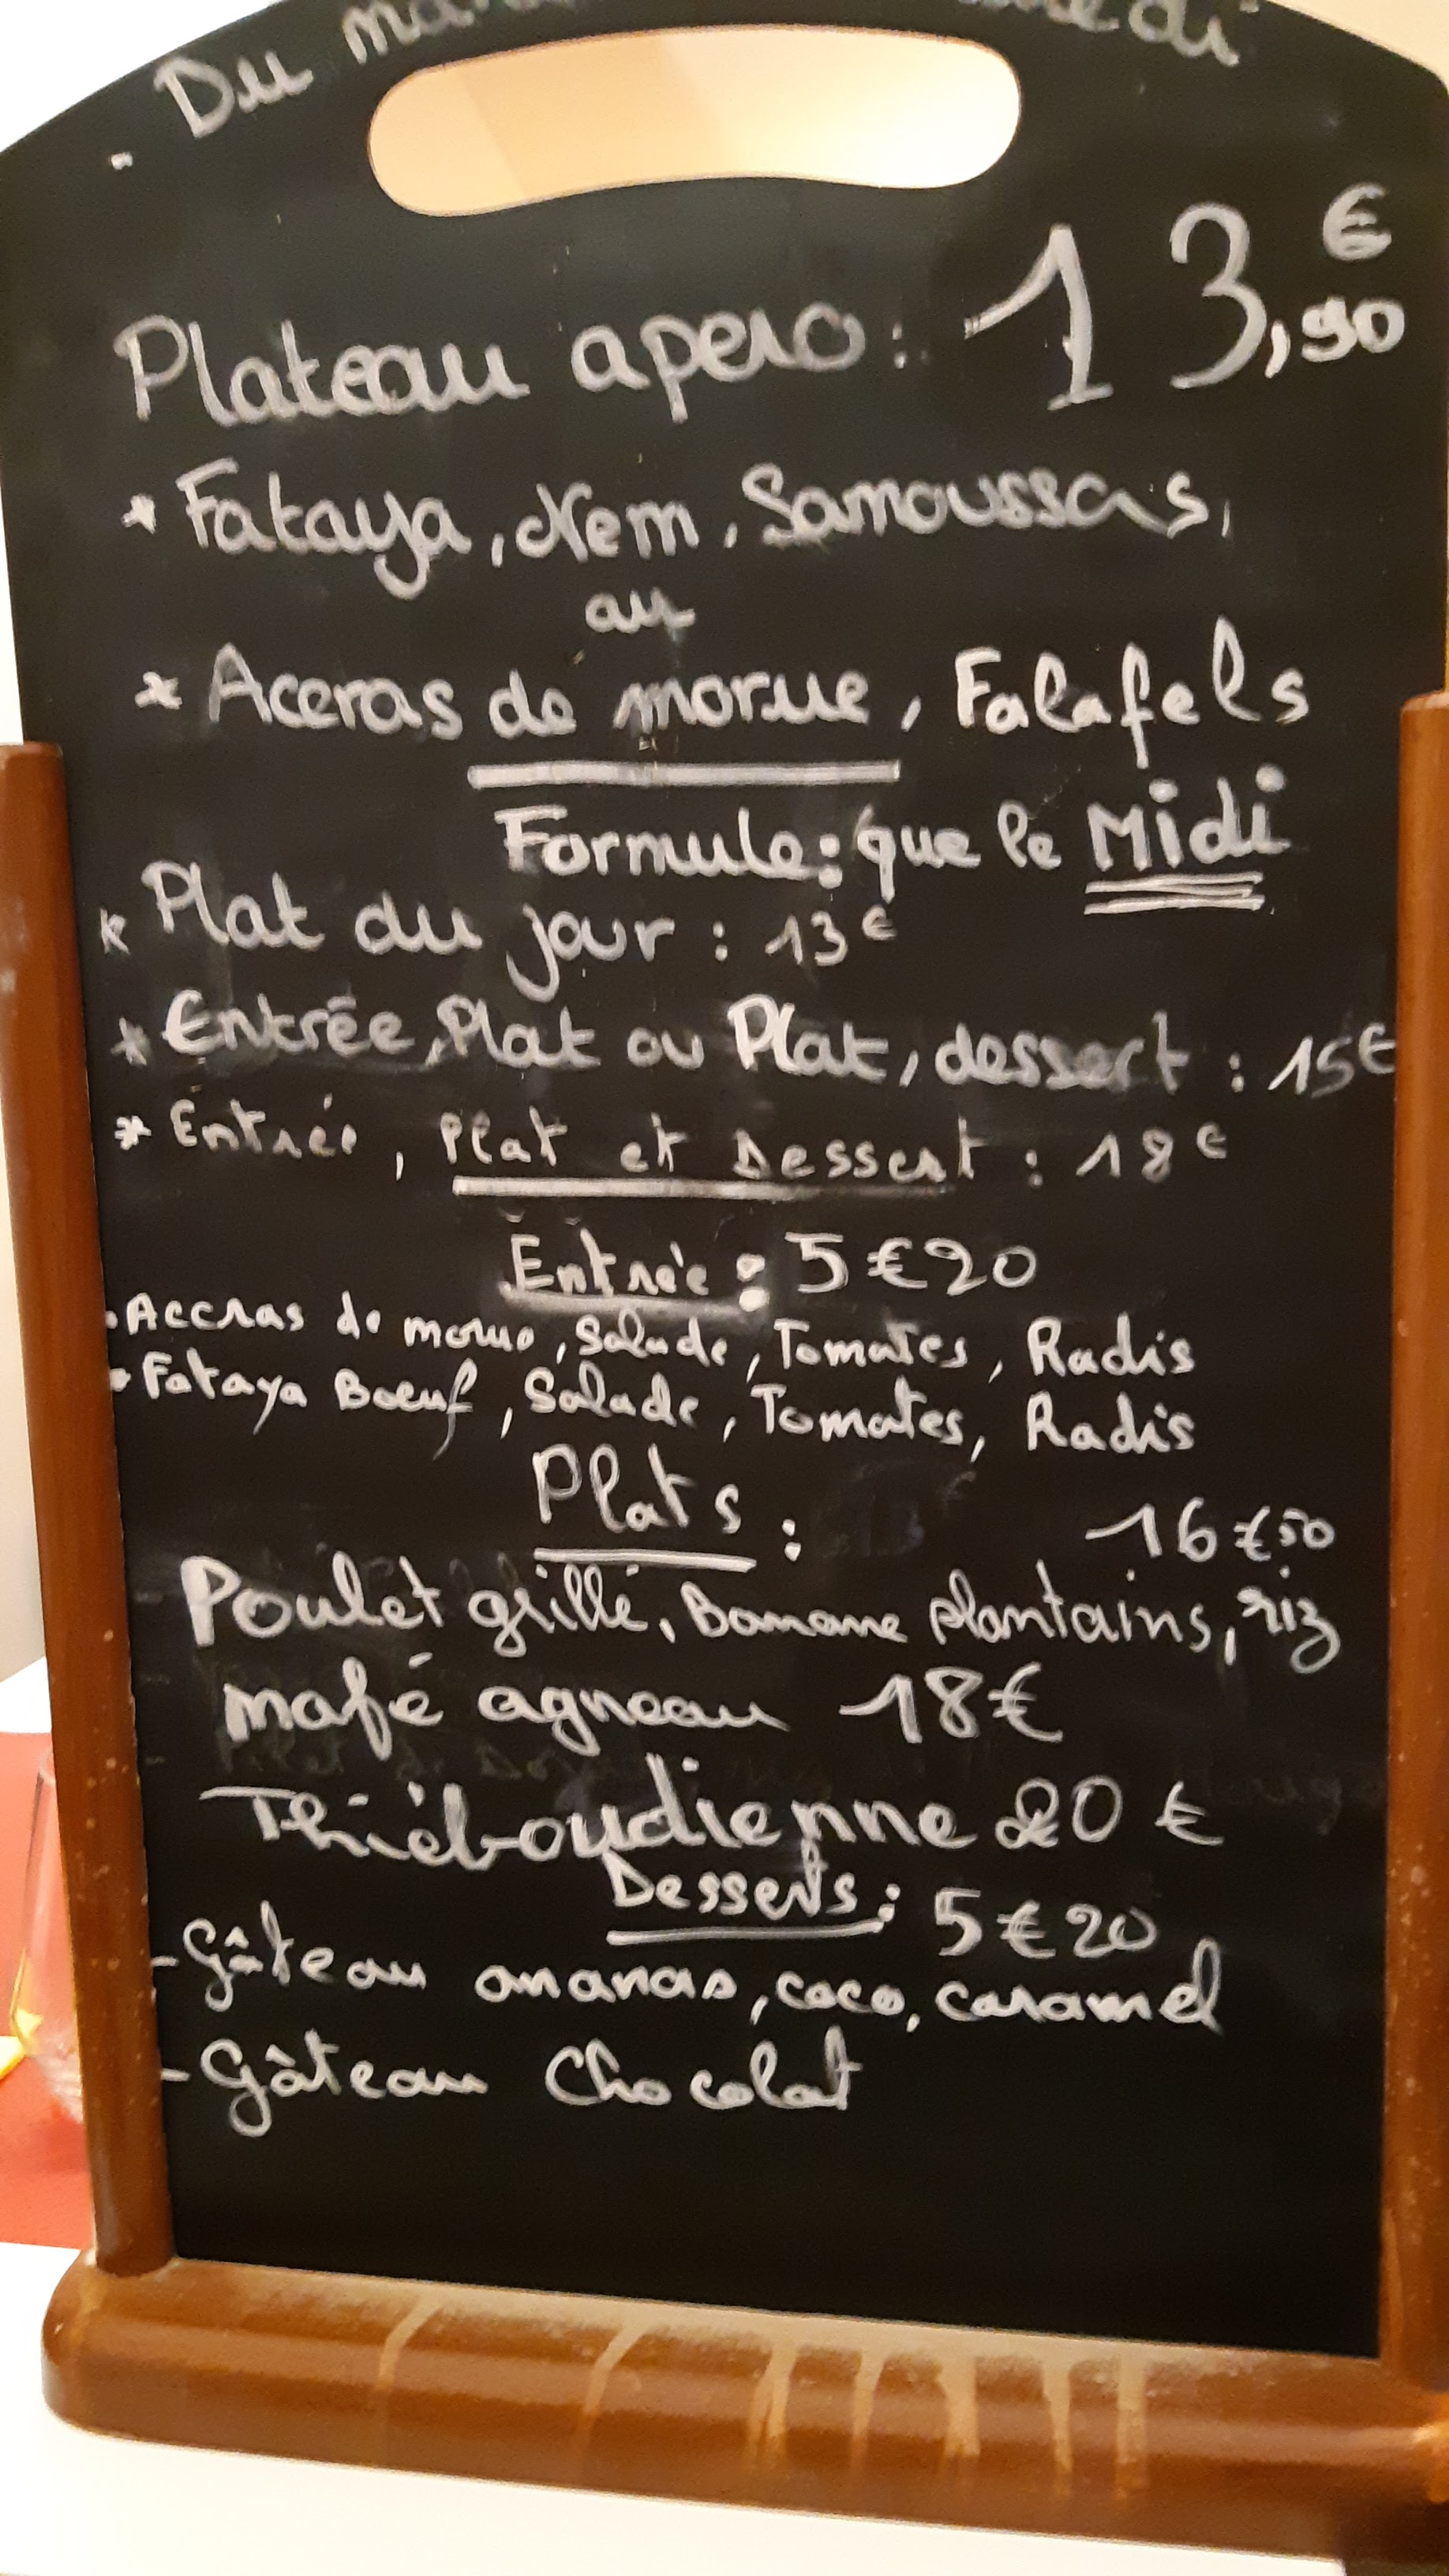 Du
Plateau apero : 13,90 €
* Fataya, Nem, Samoussas,
au
* Aceras de morue, Falafels
Formule : que le Midi
* Plat du jour : 13€
* Entrée, Plat ou Plat, dessert : 15€
* Entrée, Plat et Dessert : 18€
Entrée : 5€20
• Accras de morue, Salade, Tomates, Radis
• Fataya Boeuf, Salade, Tomates, Radis
Plats : 16€50
Poulet grillé, Banane plantains, riz
mafé agneau 18€
Thiéboudienne 20 €
Desserts : 5€20
- Gâteau ananas, coco, caramel
- Gâteau Chocolat